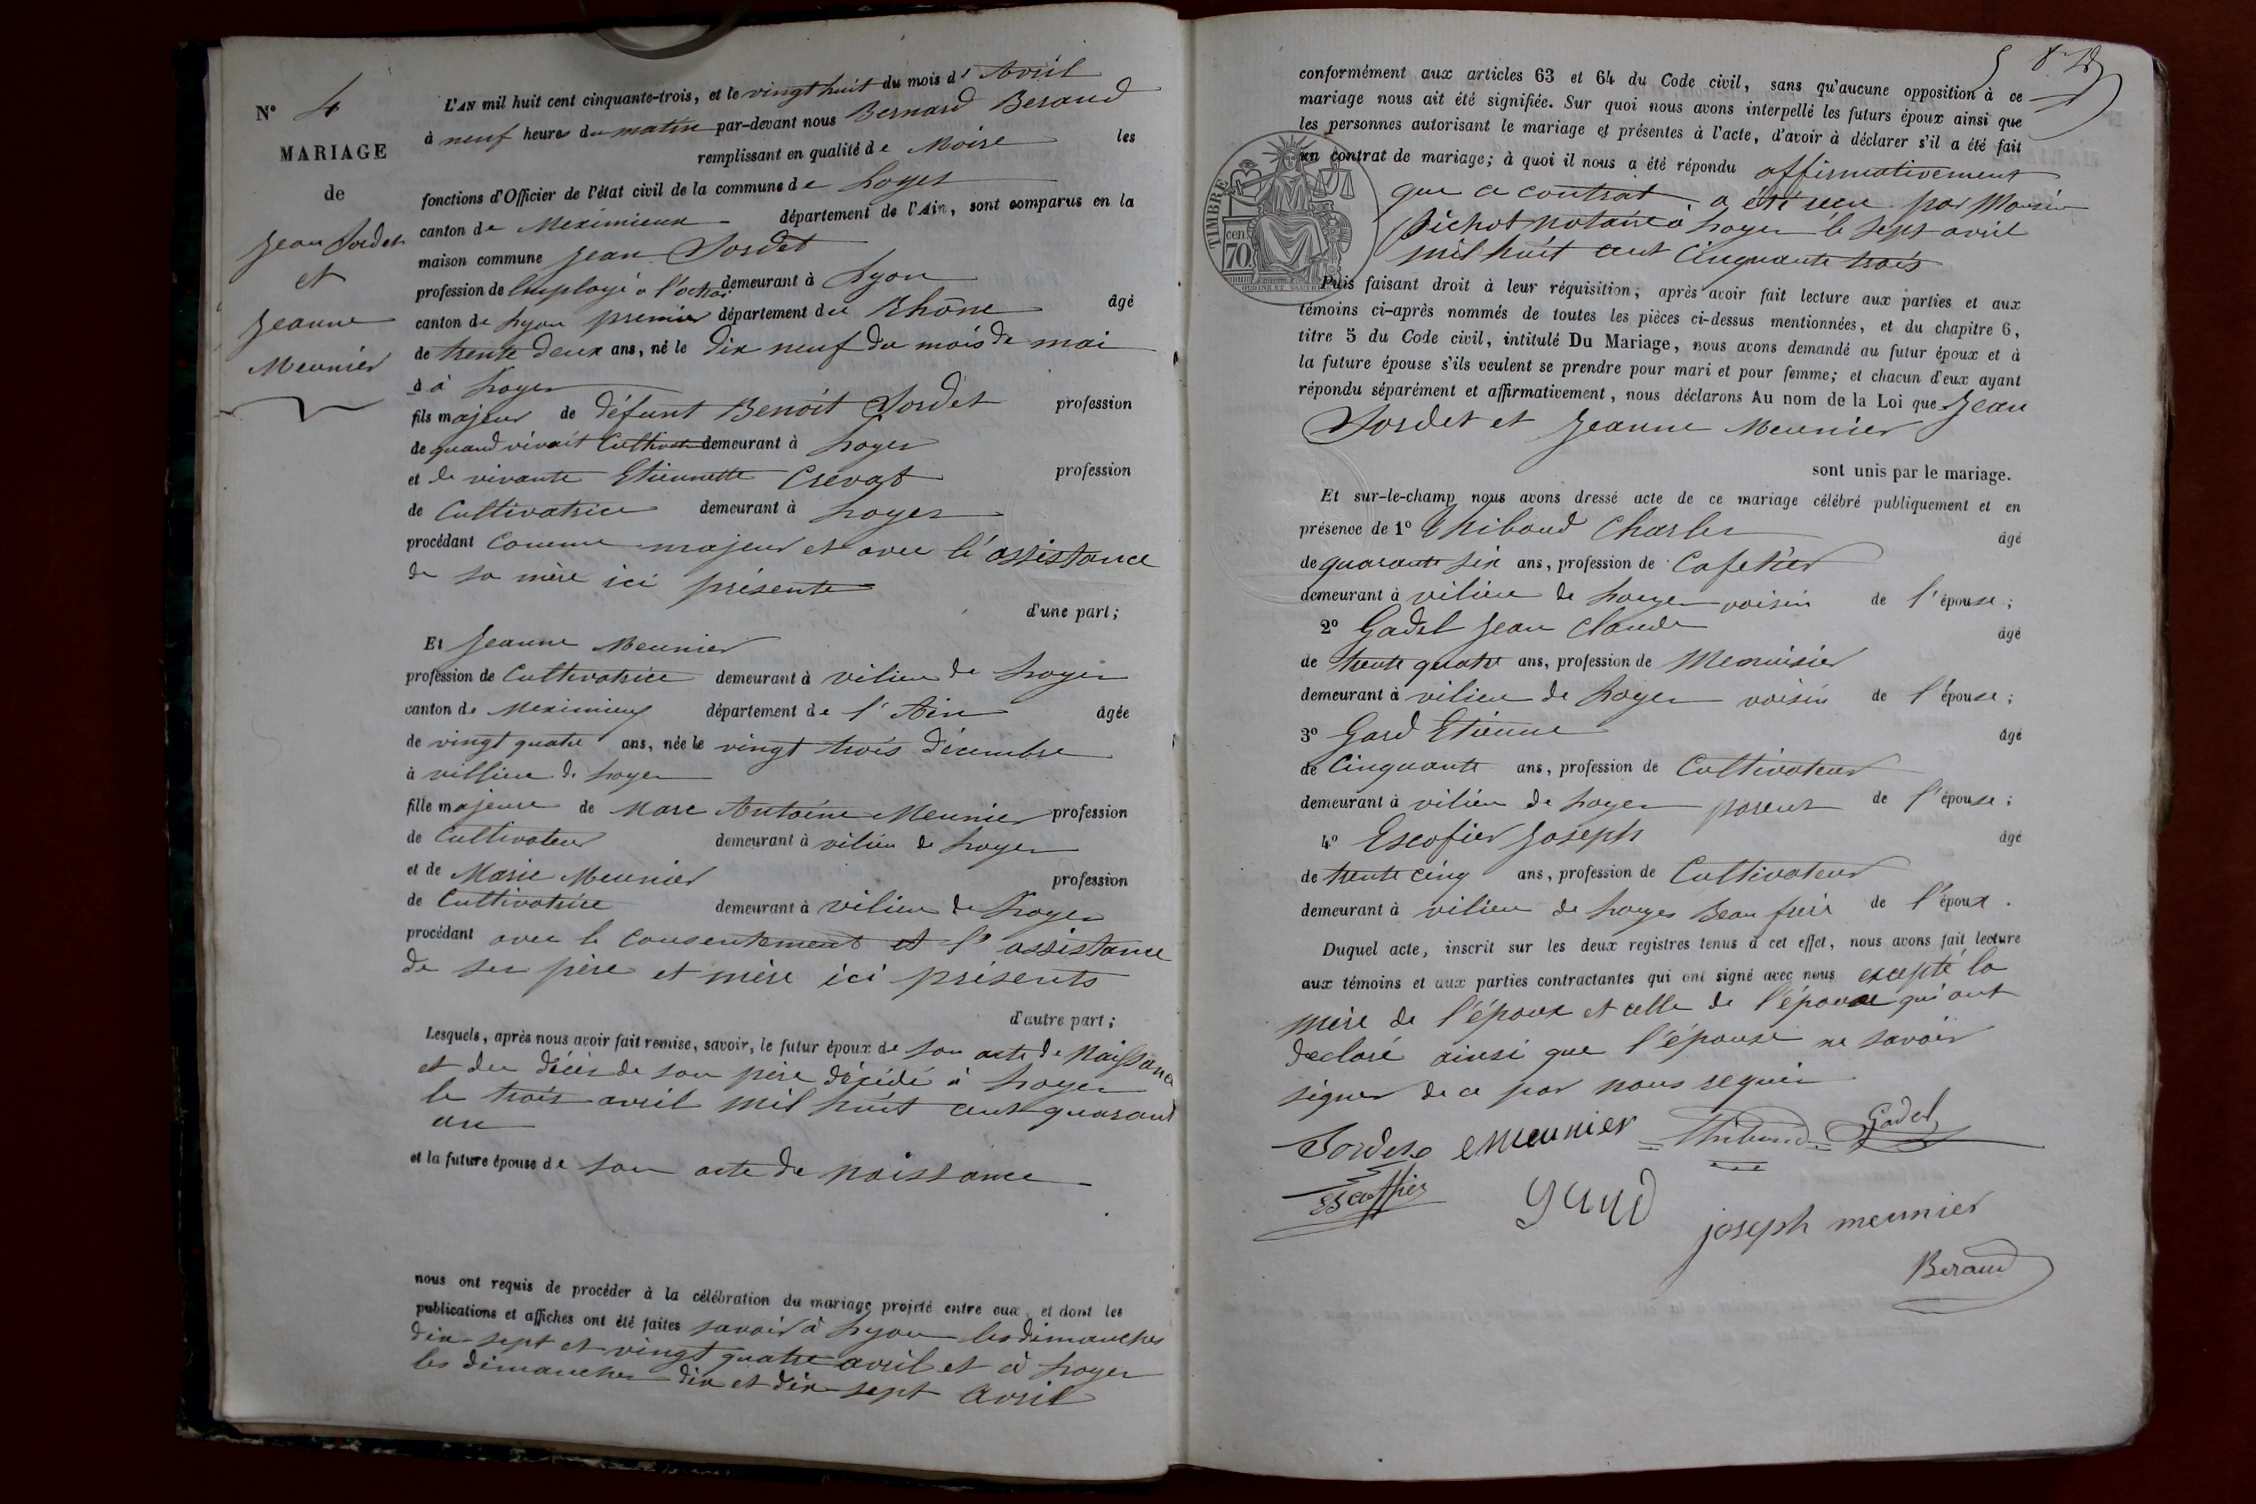 N° 4
MARIAGE
de
Jean Sordet
et
Jeanne
Meunier
L'AN mil huit cent cinquante-trois, et le vingt huit du mois d' Avril
à neuf heures du matin par-devant nous Bernard Beraud
remplissant en qualité de Maire les
fonctions d'Officier de l'état civil de la commune de Loyes
canton de Meximieux département de l'Ain, sont comparus en la
maison commune Jean Sordet
profession de Employé a l'octroi demeurant à Lyon
canton de Lyon premier département du Rhône âgé
de trente deux ans, né le dix neuf du mois de mai
à Loyes
fils majeur de défunt Benoit Sordet profession
de quand vivait Cultivateur demeurant à Loyes
et de vivante Etiennette Crevat profession
de Cultivatrice demeurant à Loyes
procédant comme majeur et avec l'assistance
de sa mère ici présente
d'une part;
Et Jeanne Meunier
profession de Cultivatrice demeurant à vilieu de Loyes
canton de Meximieux département de l'Ain âgée
de vingt quatre ans, née le vingt trois décembre
à villieu de Loyes
fille majeure de Marc Antoine Meunier profession
de Cultivateur demeurant à vilieu de Loyes
et de Marie Meunier profession
de Cultivatrice demeurant à vilieu de Loyes
procédant avec le consentement et l'assistance
de ses père et mère ici présents
d'autre part;
Lesquels, après nous avoir fait remise, savoir, le futur époux de son acte de Naissance
et du décès de son père décédé à Loyes
le trois avril mil huit cent quarant
un
et la future épouse de son acte de naissance
nous ont requis de procéder à la célébration du mariage projeté entre eux, et dont les
publications et affiches ont été faites savoir à Lyon les dimanches
dix-sept et vingt quatre avril et à Loyes
les dimanches dix et dix-sept avril
conformément aux articles 63 et 64 du Code civil, sans qu'aucune opposition à ce
mariage nous ait été signifiée. Sur quoi nous avons interpellé les futurs époux ainsi que
les personnes autorisant le mariage et présentes à l'acte, d'avoir à déclarer s'il a été fait
un contrat de mariage; à quoi il nous a été répondu affirmativement
que ce contrat a été reçu par
Pichot notaire à Loyes le sept avril
mil huit cent cinquante trois
TIMBRE
cen.
70
Puis faisant droit à leur réquisition, après avoir fait lecture aux parties et aux
témoins ci-après nommés de toutes les pièces ci-dessus mentionnées, et du chapitre 6,
titre 5 du Code civil, intitulé Du Mariage, nous avons demandé au futur époux et à
la future épouse s'ils veulent se prendre pour mari et pour femme; et chacun d'eux ayant
répondu séparément et affirmativement, nous déclarons Au nom de la Loi que Jean
Sordet et Jeanne Meunier
sont unis par le mariage.
Et sur-le-champ nous avons dressé acte de ce mariage célébré publiquement et en
présence de 1° Thibaud Charles âgé
de quarante six ans, profession de Cafetier
demeurant à vilieu de Loyes voisin de l'épouse;
2° Gadel Jean Claude âgé
de trente quatre ans, profession de Menuisier
demeurant à vilieu de Loyes voisin de l'épouse;
3° Gard Etienne âgé
de Cinquante ans, profession de Cultivateur
demeurant à vilieu de Loyes parent de l'épouse;
4° Escofier Joseph âgé
de trente cinq ans, profession de Cultivateur
demeurant à vilieu de Loyes Beau frere de l'époux.
Duquel acte, inscrit sur les deux registres tenus à cet effet, nous avons fait lecture
aux témoins et aux parties contractantes qui ont signé avec nous excepté la
mère de l'époux et celle de l'épouse qui ont
declaré ainsi que l'épouse ne savoir
signer de ce par nous requis
Sordet Meunier Thibaud Gadel
Escoffier gard joseph meunier
Beraud